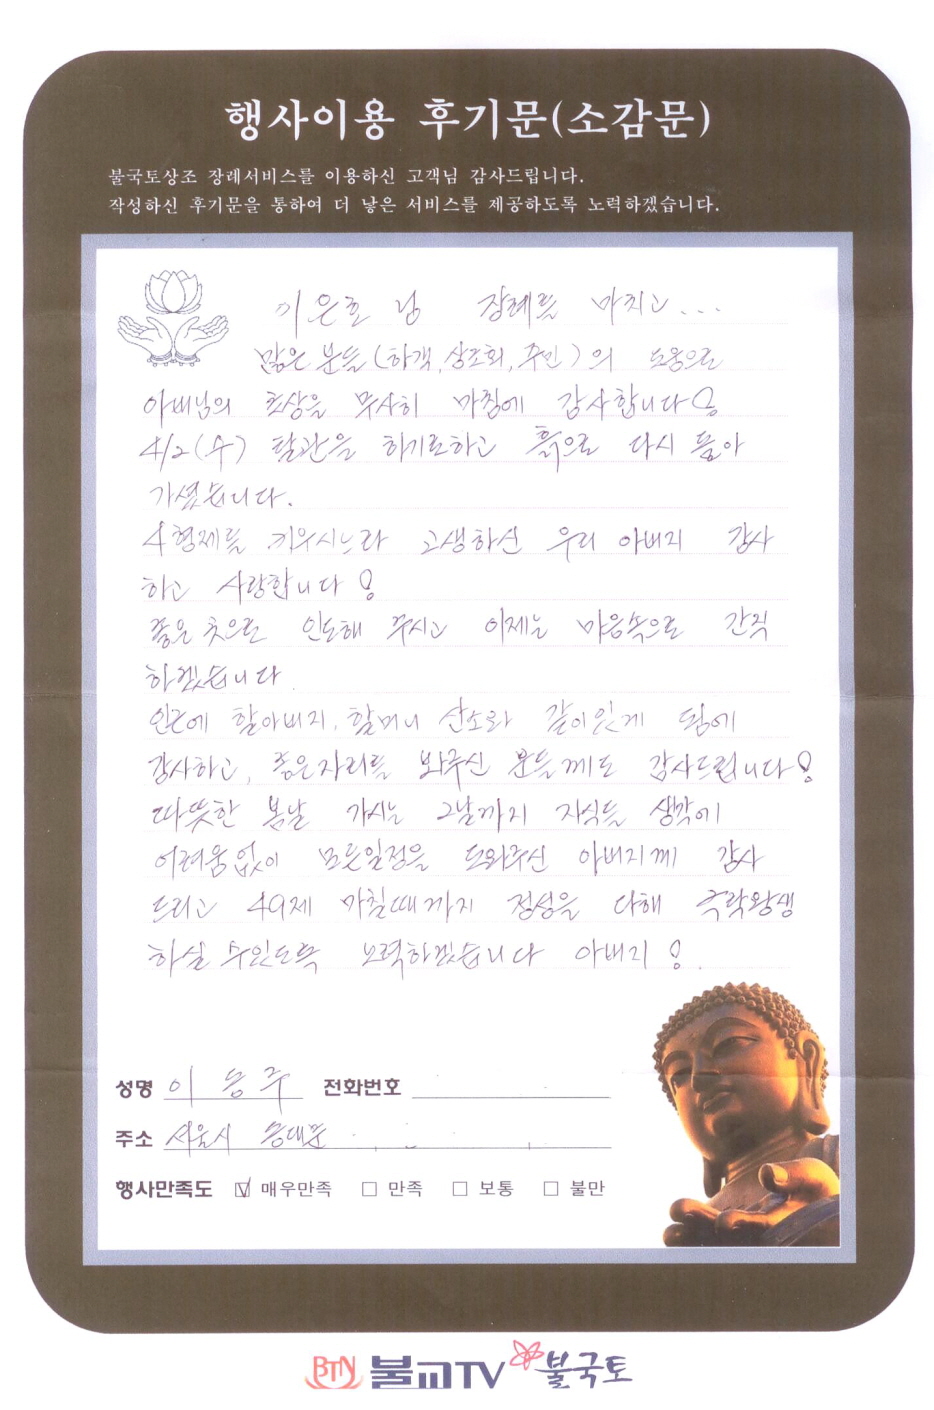 행사이용 후기문(소감문)
불국토상조 장례서비스를 이용하신 고객님 감사드립니다.
작성하신 후기문을 통하여 더 낳은 서비스를 제공하도록 노력하겠습니다.
이은호 님 장례를 마치고...
많은 분들(하객,상조회,주민)의 도움으로
아버님의 초상을 무사히 마침에 감사합니다!
4/2(수) 탈관을 하기로하고 흙으로 다시 돌아
가셨습니다.
4형제를 키우시느라 고생하신 우리 아버지 감사
하고 사랑합니다!
좋은 곳으로 인도해 주시고 이제는 마음속으로 간직
하겠습니다.
인근에 할아버지, 할머니 산소와 같이있게 됨에
감사하고, 좋은자리를 봐주신 분들께도 감사드립니다!
따뜻한 봄날 가시는 그날까지 자식들 생각에
어려움없이 모든일정을 도와주신 아버지께 감사
드리고 49제 마칠때까지 정성을 다해 극락왕생
하실 수있도록 노력하겠습니다 아버지!.
성명 이승주 전화번호
주소 서울시 동대문
행사만족도 ☑ 매우만족 □ 만족 □ 보통 □ 불만
BTN 불교TV 불국토